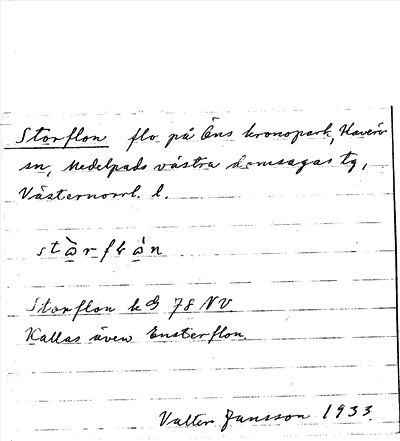 Storflon flo på Öns kronopark, Haverö
sn, Medelpads västra domsagas tg,
Västernorrl. l.
stɷ̀rflɷ́n
Storflon k G 78 NV.
Kallas även Ensterflon.
Valter Jansson 1933.